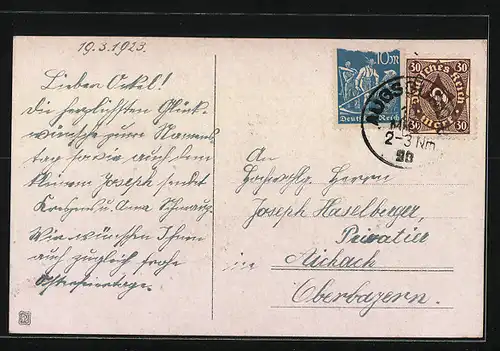 19.3.1923.
Lieber Onkel!
Die herzlichsten Glück-
wünsche zum Namens
tag sowie auch dem
kleinen Joseph sendet
u. Anna
Wir wünschen Ihnen
auch zugleich frohe
Osterfeiertage.
10 M
Deutsches Reich
30 Deutsches Reich 30
30 30
AUGSBURG
2-3 Nm.
An
Herrn
Joseph Haselberger,
Privatier
in Aichach
Oberbayern.